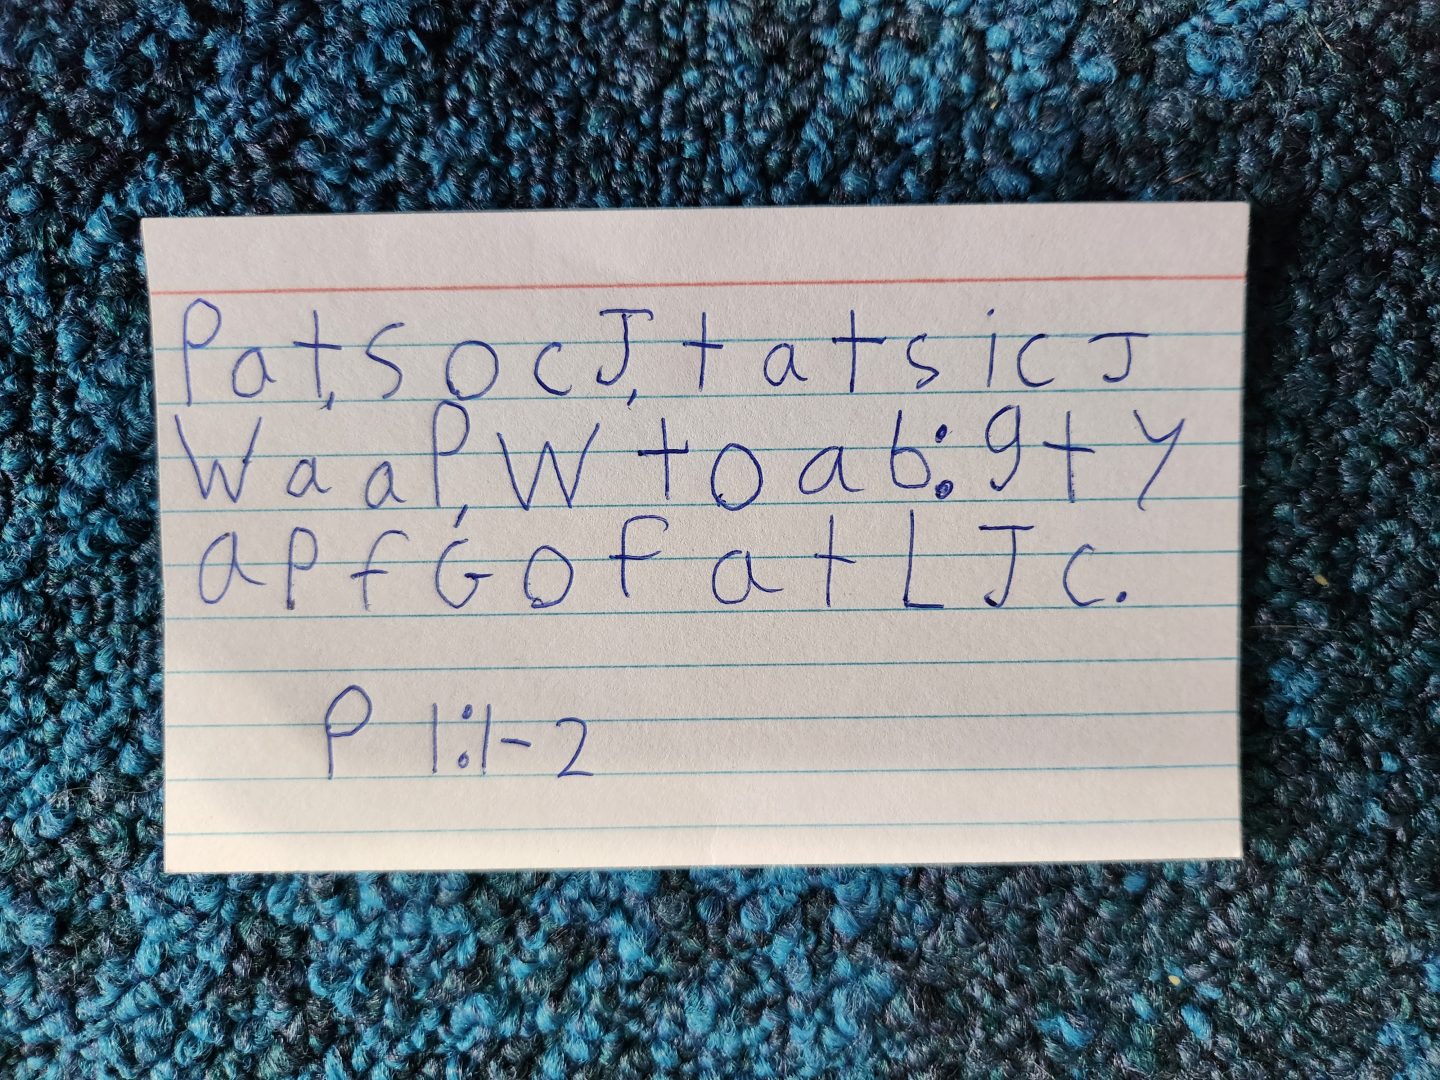 P a t, s o c J, t a t s i c J
W a a P, W t o a b: g t y
a P f G o f a t L J c.
P 1:1-2